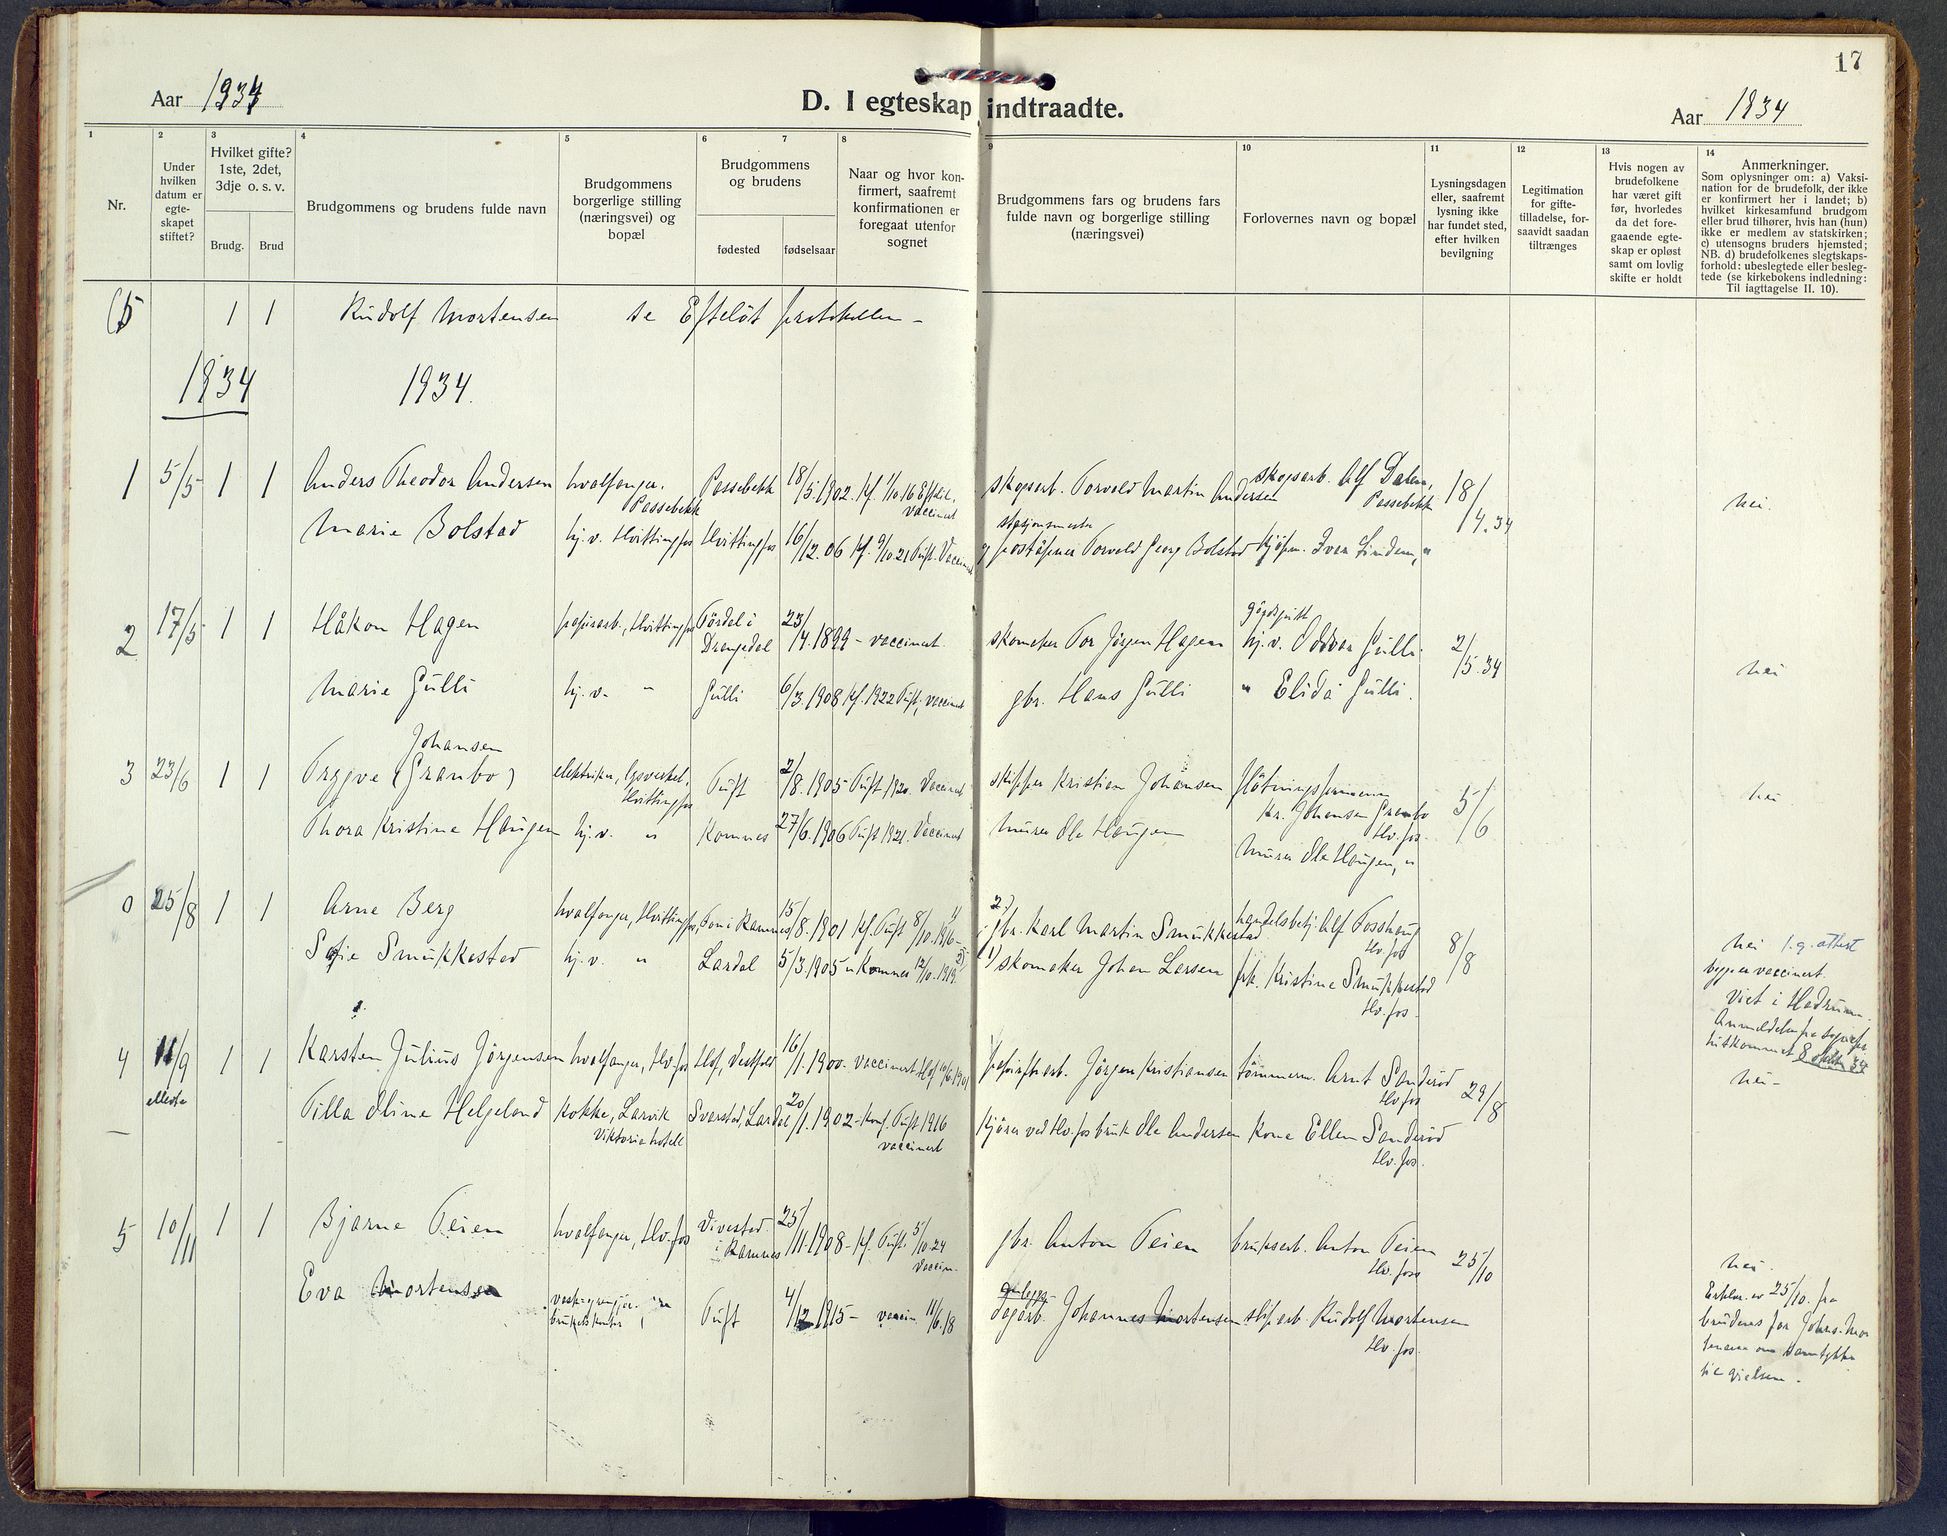 17
Aar 1934
D. I egteskap indtraadte.
Aar 1934
1
2
3
4
5
6
7
8
9
10
11
12
13
14
Nr.
Under
hvilken
datum er
egte-
skapet
stiftet?
Hvilket gifte?
1ste, 2det,
3dje o. s. v.
Brudg.
Brud
Brudgommens og brudens fulde navn
Brudgommens
borgerlige stilling
(næringsvei) og
bopæl
Brudgommens
og brudens
fødested
fødselsaar
Naar og hvor kon-
firmert, saafremt
konfirmationen er
foregaat utenfor
sognet
Brudgommens fars og brudens fars
fulde navn og borgerlige stilling
(næringsvei)
Forlovernes navn og bopæl
Lysningsdagen
eller, saafremt
lysning ikke
har fundet sted,
efter hvilken
bevilgning
Legitimation
for gifte-
tilladelse, for-
saavidt saadan
tiltrænges
Hvis nogen av
brudefolkene
har været gift
før, hvorledes
da det fore-
gaaende egte-
skap er opløst
samt om lovlig
skifte er holdt
Anmerkninger.
Som oplysninger om: a) Vaksi-
nation for de brudefolk, der ikke
er konfirmert her i landet; b)
hvilket kirkesamfund brudgom
eller brud tilhører, hvis han (hun)
ikke er medlem av statskirken;
c) utensogns bruders hjemsted;
NB. d) brudefolkenes slegtskaps-
forhold: ubeslegtede eller besleg-
tede (se kirkebokens indledning:
Til iagttagelse II. 10).
(5 1 1 Rudolf Mortensen se Efteløt protokollen –
1934 1934.
1 5/5 1 1 Anders Theodor Andersen hvalfanger, Passebekk Passebekk 18/5.1902. kf. 1/10.16 Eftel. vaccinert skogsarb. Torvald Martin Andersen skogsarb. Alf Dalen, Passebekk 18/4.34 nei.
Marie Bolstad hj.v. Hvittingfos Hvittingfos 16/12.06 kf. 9/10.21 Tuft. Vaccinert stasjonsmester og poståpner Torvald Georg Bolstad kjøpm. Ivar Lindem, "
2 17/5 1 1 Håkon Hagen papirarb., Hvittingfos Tørdal i Drangedal 23/4.1899 – vaccinert. skomaker Tor Jørgen Hagen gårdsgutt hj.v. Oddvar Gulli 2/5.34 nei
Marie Gulli hj.v. " Gulli 6/3.1908 kf. 1922 Tuft, vaccinert gbr. Hans Gulli " Elida Gulli.
3 23/6 1 1 Trygve Johansen (Granbo) elektriker, lysverket, Hvittingfos Tuft 2/8.1905 Tuft 1920. Vaccinert skipper Kristian Johansen fløtningsformann Kr. Johansen Granbo Hv.fos. 5/6 nei
Thora Kristine Haugen hj.v. " Komnes 27/6.1906 Tuft 1921. Vaccinert murer Ole Haugen murer Ole Haugen, "
0 25/8 1 1 Arne Berg hvalfanger, Hvittingfos, Fon i Ramnes 15/8.1901 kf. Tuft 8/10.1916 – 1) 2) gbr. Karl Martin Smukkestad handelsbetj. Alf Fosshaug Hv.fos 8/8 nei
Sofie Smukkestad hj.v. " Lardal 5/3.1905 " Komnes 12/10.1919. 2) 1) skomaker Johan Larsen frk. Kristine Smukkestad Hv.fos.
begge vaccinert.
Viet i Hedrum.
4 11/9 1 1 Karsten Julius Jørgensen hvalfanger, Hv.fos Hof, Vestfold 16/1.1900. vaccinert Hof 10/6.1901 papirfbarb. Jørgen Kristiansen tømmerm. Arnt Sanderød Hv.fos 29/8 nei –
Tilla Oline Helgeland kokke, Larvik Viktoria hotell Svarstad, Lardal 20/1.1902 – konf. Tuft 1916 vaccinert kjører ved Hv.fos bruk Ole Andersen kone Ellen Sanderød Hv.fos.
5 10/11 1 1 Bjarne Teien hvalfanger, Hv.fos Vivestad i Ramnes 25/11.1908 – kf. Tuft 5/10.24 vaccin. gbr. Anton Teien bruksarb. Anton Teien Hv.foss 25/10 nei.
Eva Mortensen Tuft 4/12.1915 – vaccin. 11/6.18 dagarb. Johannes Mortensen slip.arb. Rudolf Mortensen Hv.fos.
Erklær. av 25/10. fra
brudens far Johs. Mor
tensen om samtykke
til vielsen.